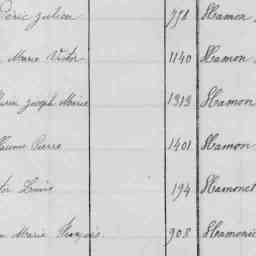 Péric Julien 998 Hamon
Marie Victor 1140 Hamon
Joseph Marie 1313 Hamon
Pierre 1401 Hamon
Louis 194 Hamonet
Marie François. 908 Hamonic